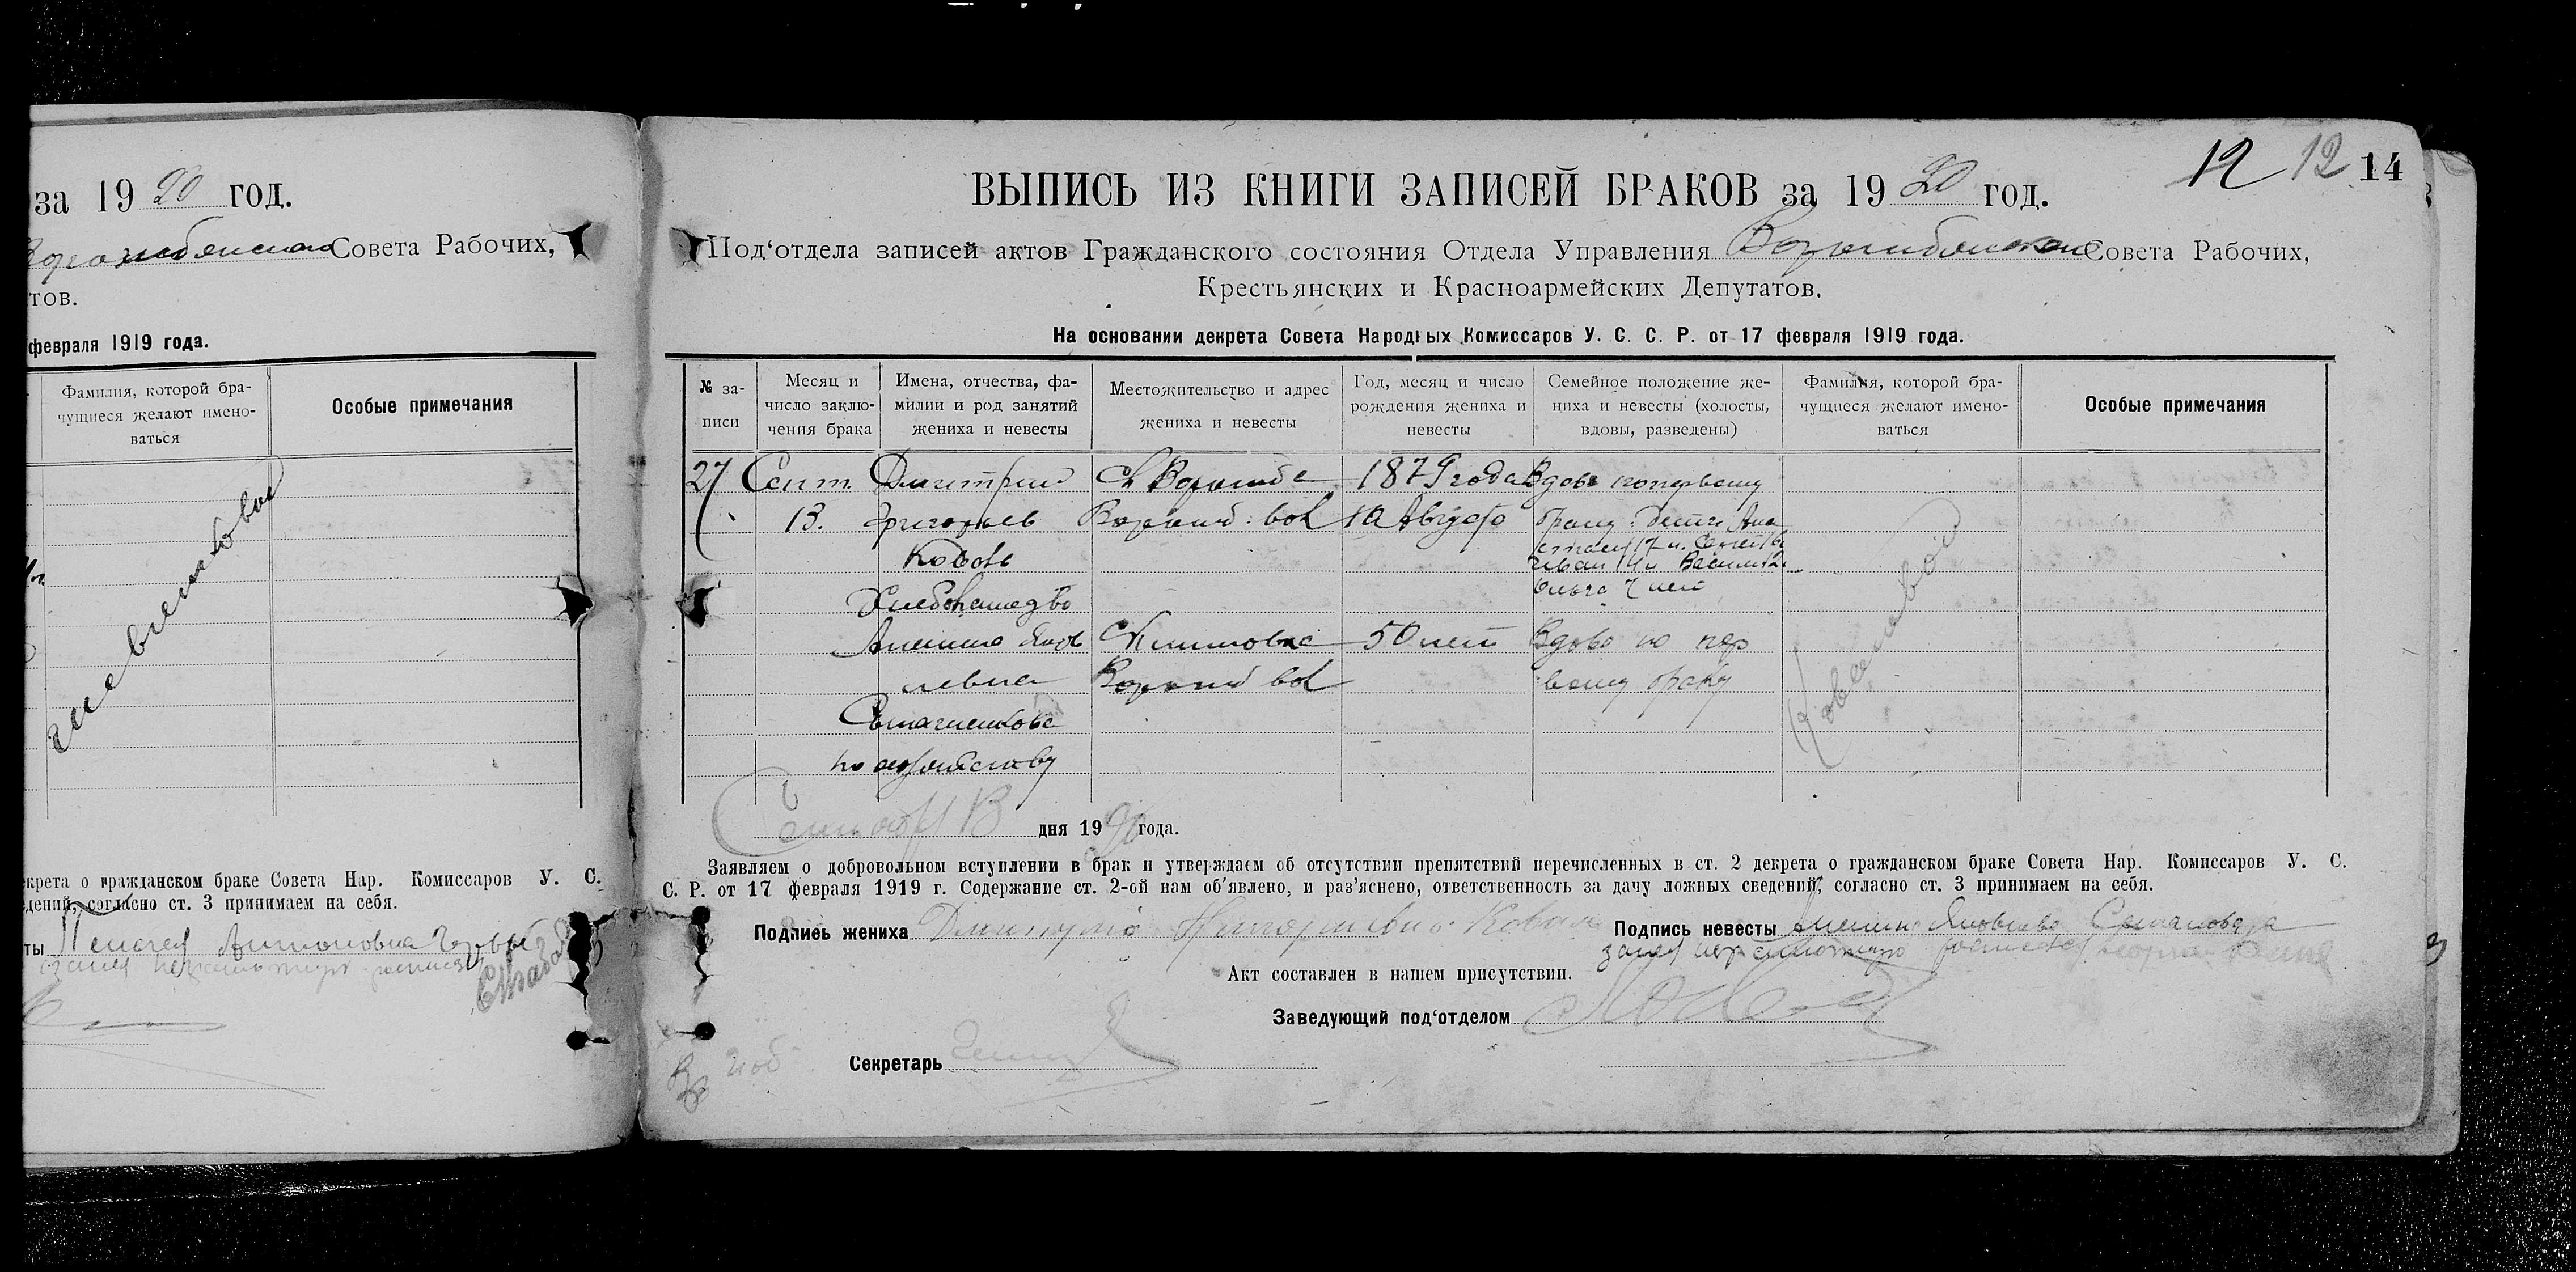 за 1920 год.
Совета Рабочих,
тов.
февраля 1919 года.
Фамилия, которой бра-
чущиеся желают имено-
ваться
Особые примечания
крета о гражданском браке Совета Нар. Комиссаров У. С.
дений, согласно ст. 3 принимаем на себя.
ты Пелагея Антоновна
12 12 14
ВЫПИСЬ ИЗ КНИГИ ЗАПИСЕЙ БРАКОВ за 1920 год.
Под'отдела записей актов Гражданского состояния Отдела Управления Совета Рабочих,
Крестьянских и Красноармейских Депутатов.
На основании декрета Совета Народных Комиссаров У. С. С. Р. от 17 февраля 1919 года.
№ за-
писи
Месяц и
число заклю-
чения брака
Имена, отчества, фа-
милии и род занятий
жениха и невесты
Местожительство и адрес
жениха и невесты
Год, месяц и число
рождения жениха и
невесты
Семейное положение же-
ниха и невесты (холосты,
вдовы, разведены)
Фамилия, которой бра-
чущиеся желают имено-
ваться
Особые примечания
27
Сент.
13.
Дмитрий
Григорьев
Коваль
Хлебопашество
С Ворожба
Ворожб. вол
1879 года
10 Августа
Вдов по первому
браку. дети
Иван 14 л Васили 12
Ольга 7 лет
левна
по хозяйству
Ворожб вол
50 лет
Вдова по пер
вому браку
Ковалевой
дня 1920 года.
Заявляем о добровольном вступлении в брак и утверждаем об отсутствии препятствий перечисленных в ст. 2 декрета о гражданском браке Совета Нар. Комиссаров У. С.
С. Р. от 17 февраля 1919 г. Содержание ст. 2-ой нам об'явлено, и раз'яснено, ответственность за дачу ложных сведений, согласно ст. 3 принимаем на себя.
Подпись жениха Дмитрий Григориевич Коваль
Подпись невесты Яковлева
за неграмотную
Акт составлен в нашем присутствии.
Заведующий под'отделом
Секретарь